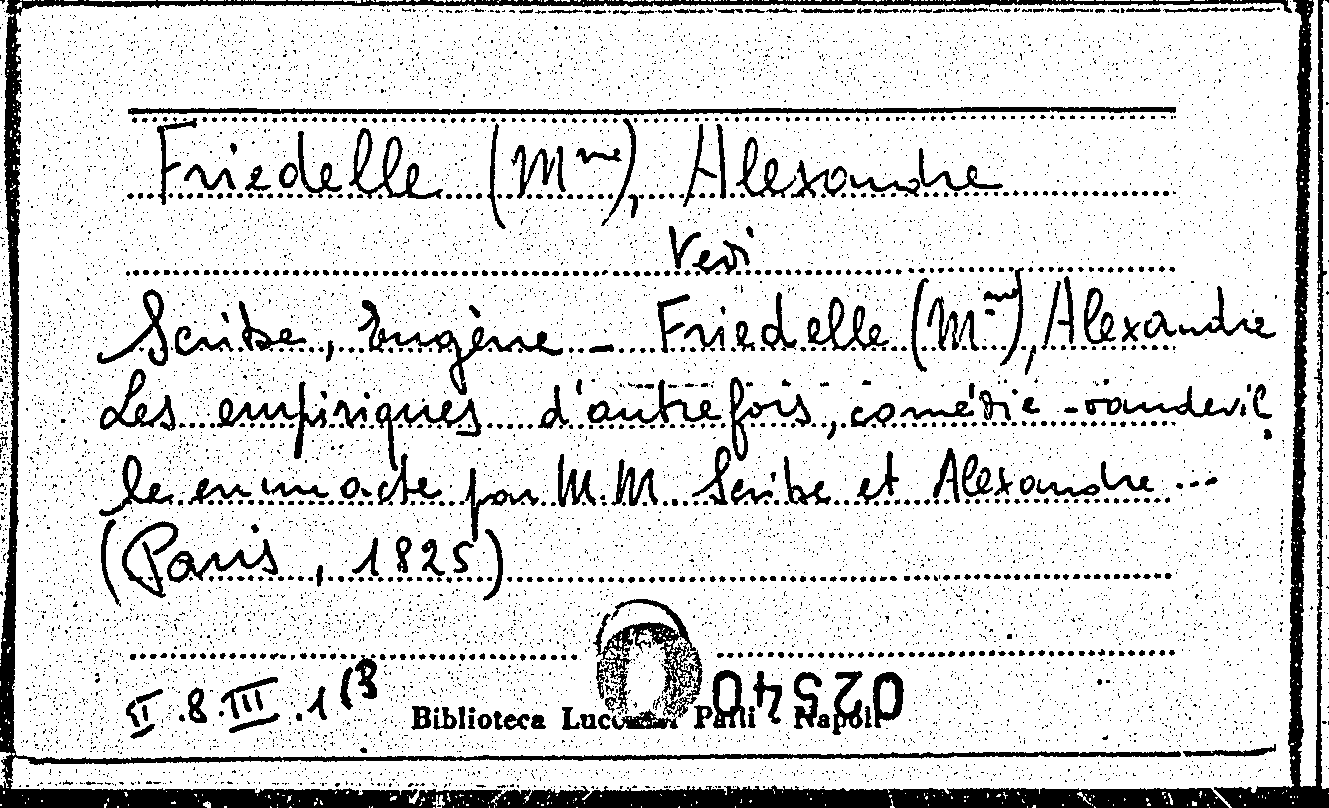 Friedelle (Mme), Alexandre
Vedi
Scribe, Eugène - Friedelle (Mme), Alexandre
Les empiriques d'autrefois, comédie-vaudevil
le en un acte par M.M. Scribe et Alexandre ...
(Paris, 1825)
II.8.III.1(3
02540
Biblioteca Lucchesi Palli - Napoli